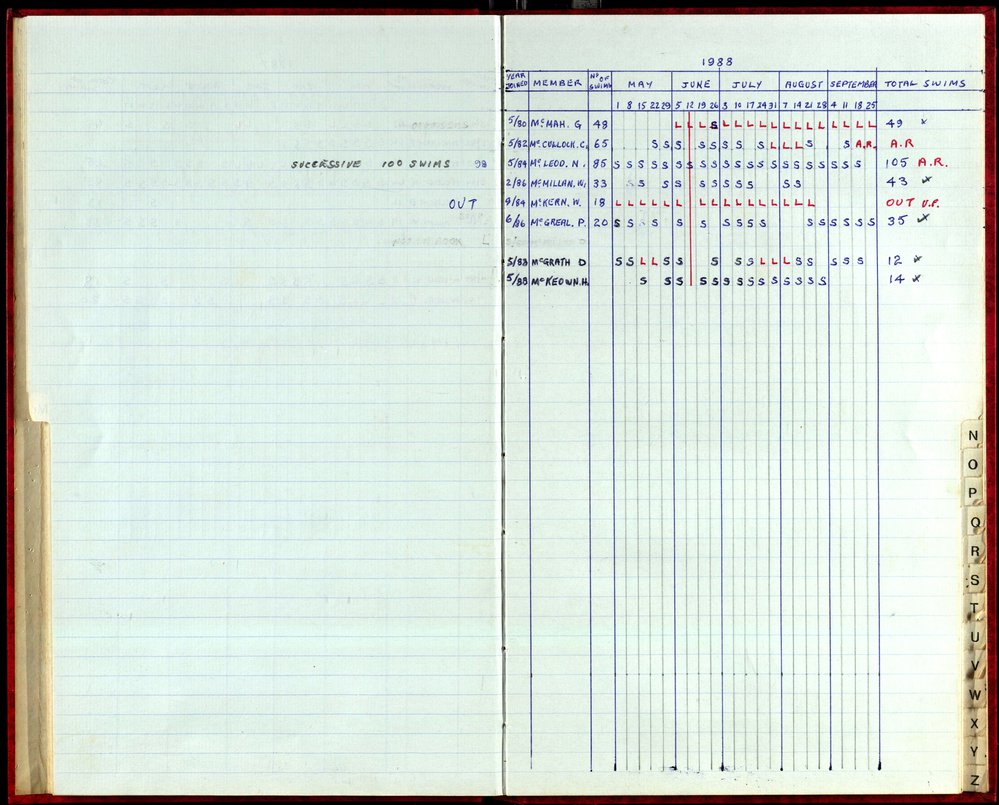 1988
YEAR JOINED MEMBER Nº OF SWIMS MAY JUNE JULY AUGUST SEPTEMBER TOTAL SWIMS
1 8 15 22 29 5 12 19 26 3 10 17 24 31 7 14 21 28 4 11 18 25
5/80 McMAH. G 48 L L L S L L L L L L L L L L L L L 49
5/82 McCULLOCK. C. 65 S S S S S S S S L L L S S A.R. A.R
SUCCESSIVE 100 SWIMS 98 5/84 McLEOD. N. 85 S S S S S S S S S S S S S S S S S S S S S 105 A.R.
2/86 McMILLAN. W. 33 S S S S S S S S S S S 43
OUT 9/84 McKERN. W. 18 L L L L L L L L L L L L L L L L OUT U.F.
6/86 McGREAL. P. 20 S S S S S S S S S S S S S S S S 35
5/88 McGRATH D S S L L S S S S S L L L S S S S S 12
5/88 McKEOWN. H. S S S S S S S S S S S S S S 14
N
O
P
Q
R
S
T
U
V
W
X
Y
Z